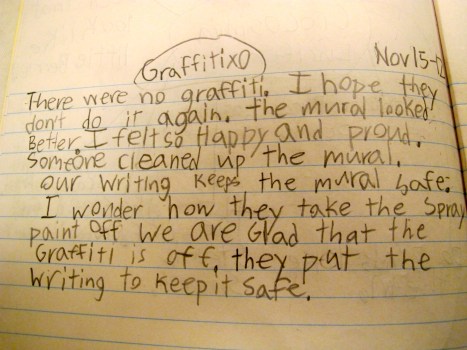 Graffitixo
Nov 15-0
There were no graffiti. I hope they
don't do it again. the mural looked
Better. I felt so Happy and proud.
Someone cleaned up the mural.
our writing keeps the mural safe.
I wonder how they take the Spray
paint off we are Glad that the
Graffiti is off. they put the
writing to keep it safe!